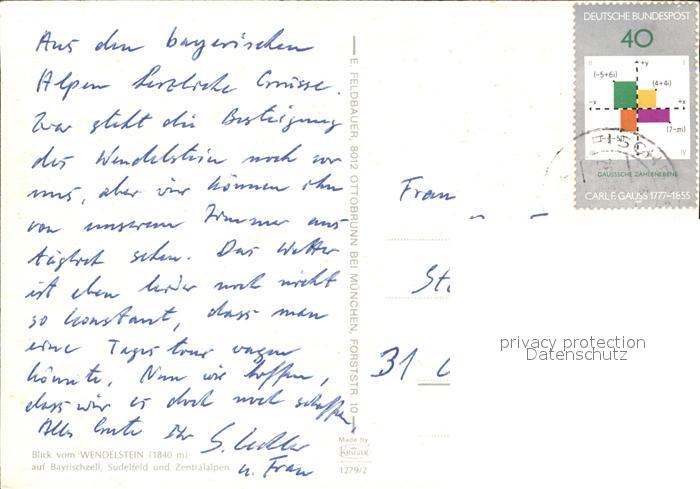 Aus den bayerischen
Alpen herzliche Grüsse.
Zwar steht die Besteigung
des Wendelstein noch vor
uns, aber wir können ihn
von unserem Zimmer aus
täglich sehen. Das Wetter
ist eben leider noch nicht
so konstant, dass man
eine Tagestour wagen
könnte. Nun wir hoffen,
dass wir es doch noch schaffen.
Alles Gute Ihr
u. Frau
Blick vom WENDELSTEIN (1840 m)
auf Bayrischzell, Sudelfeld und Zentralalpen
E. FELDBAUER, 8012 OTTOBRUNN BEI MÜNCHEN, FORSTSTR. 10
Made by
KRÜGER
1279/2
Frau
31
DEUTSCHE BUNDESPOST
40
II +y I
(-5+6i)
(4+4i)
-x +x
(7-mi)
IV
GAUSSSCHE ZAHLENEBENE
CARL F. GAUSS 1777-1855
privacy protection
Datenschutz